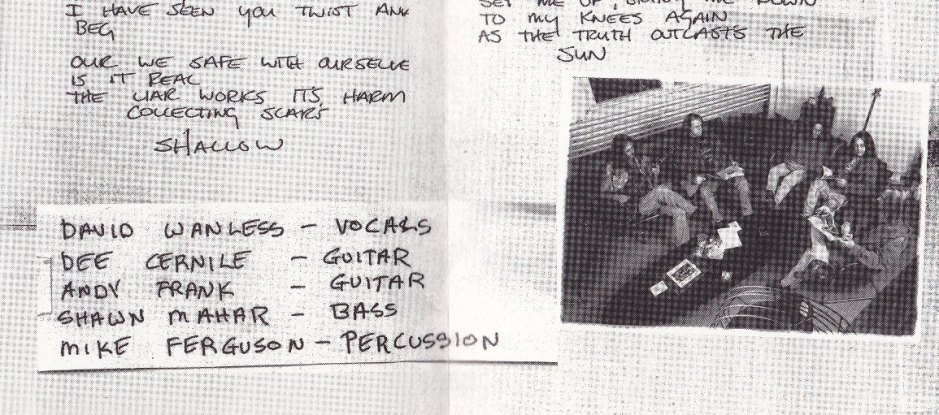 I HAVE SEEN YOU TWIST AND
BEG
OUR WE SAFE WITH OURSELVE
IS IT REAL
THE LIAR WORKS ITS HARM
COLLECTING SCARS
SHALLOW
SET ME UP, BRING ME DOWN
TO MY KNEES AGAIN
AS THE TRUTH OUTCASTS THE
SUN
DAVID WANLESS - VOCALS
DEE CERNILE - GUITAR
ANDY FRANK - GUITAR
SHAWN MAHAR - BASS
MIKE FERGUSON - PERCUSSION